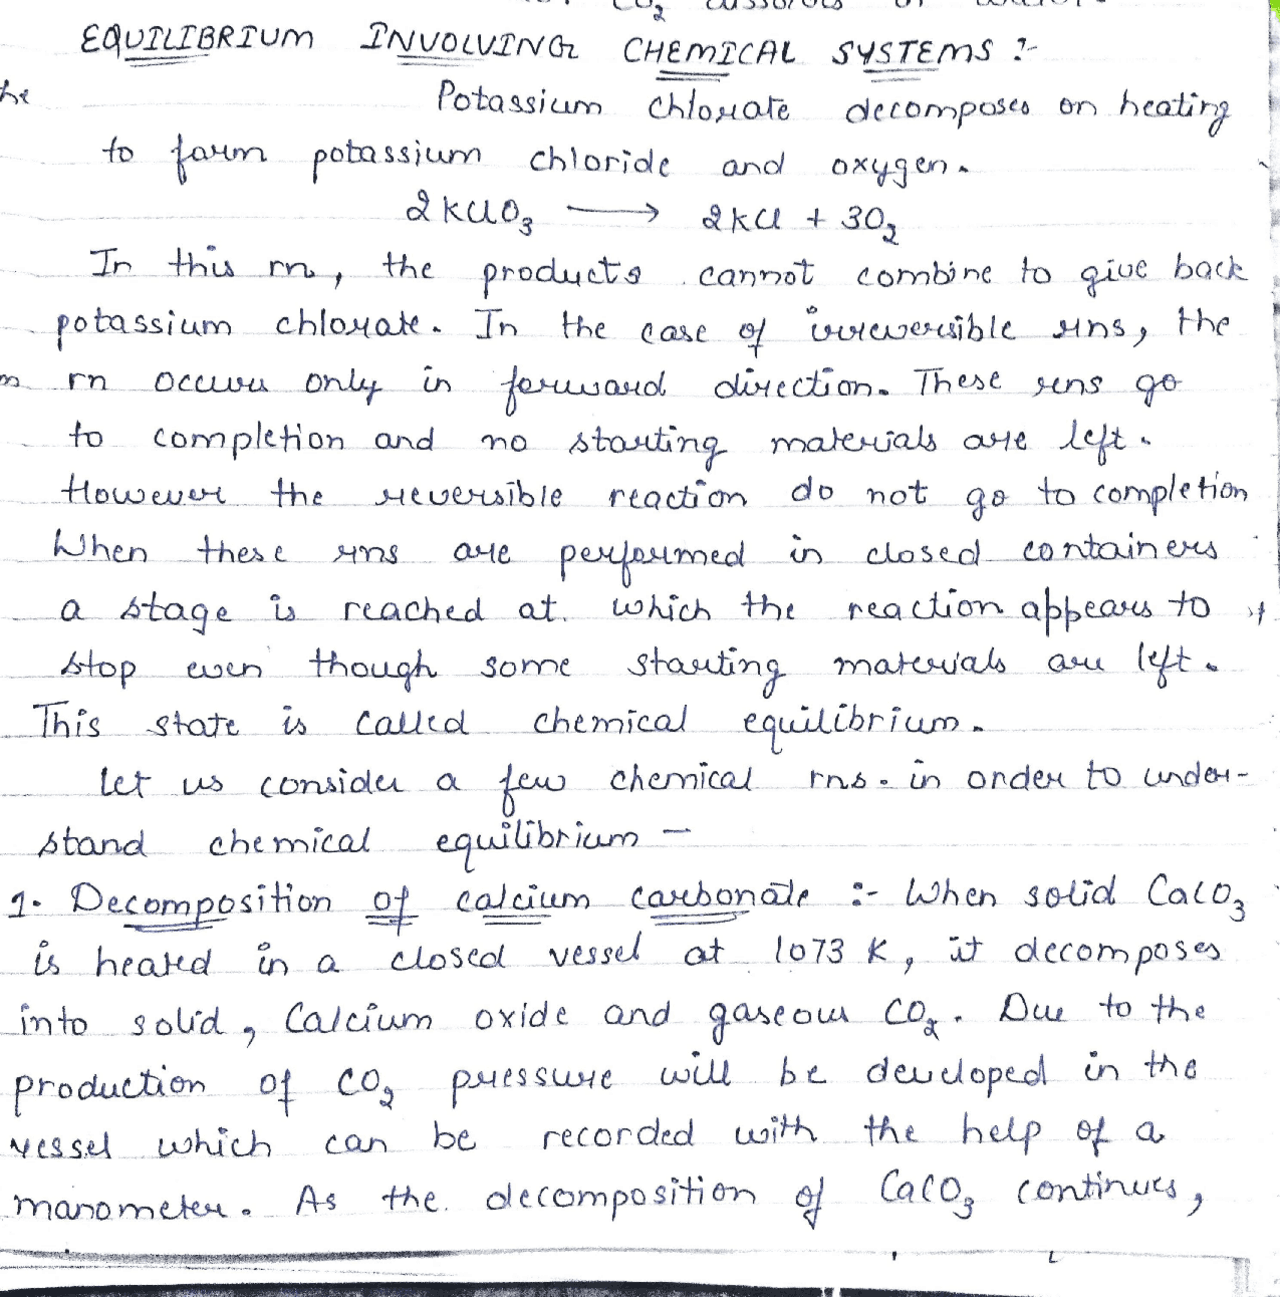 CO2 dissolves
EQUILIBRIUM INVOLVING CHEMICAL SYSTEMS :-
he Potassium chlorate decomposes on heating
to form potassium chloride and oxygen.
2KClO3 → 2KCl + 3O2
In this rn, the products cannot combine to give back
potassium chlorate. In the case of irreversible rns, the
rn occurs only in forward direction. These rns go
to completion and no starting materials are left.
However the reversible reaction do not go to completion
When these rns are performed in closed containers
a stage is reached at which the reaction appears to
stop even though some starting materials are left.
This state is called chemical equilibrium.
let us consider a few chemical rns. in order to under-
stand chemical equilibrium —
1. Decomposition of calcium carbonate :- When solid CaCO3
is heated in a closed vessel at 1073 K, it decomposes
into solid, Calcium oxide and gaseous CO2. Due to the
production of CO2 pressure will be developed in the
vessel which can be recorded with the help of a
manometer. As the decomposition of CaCO3 continues,